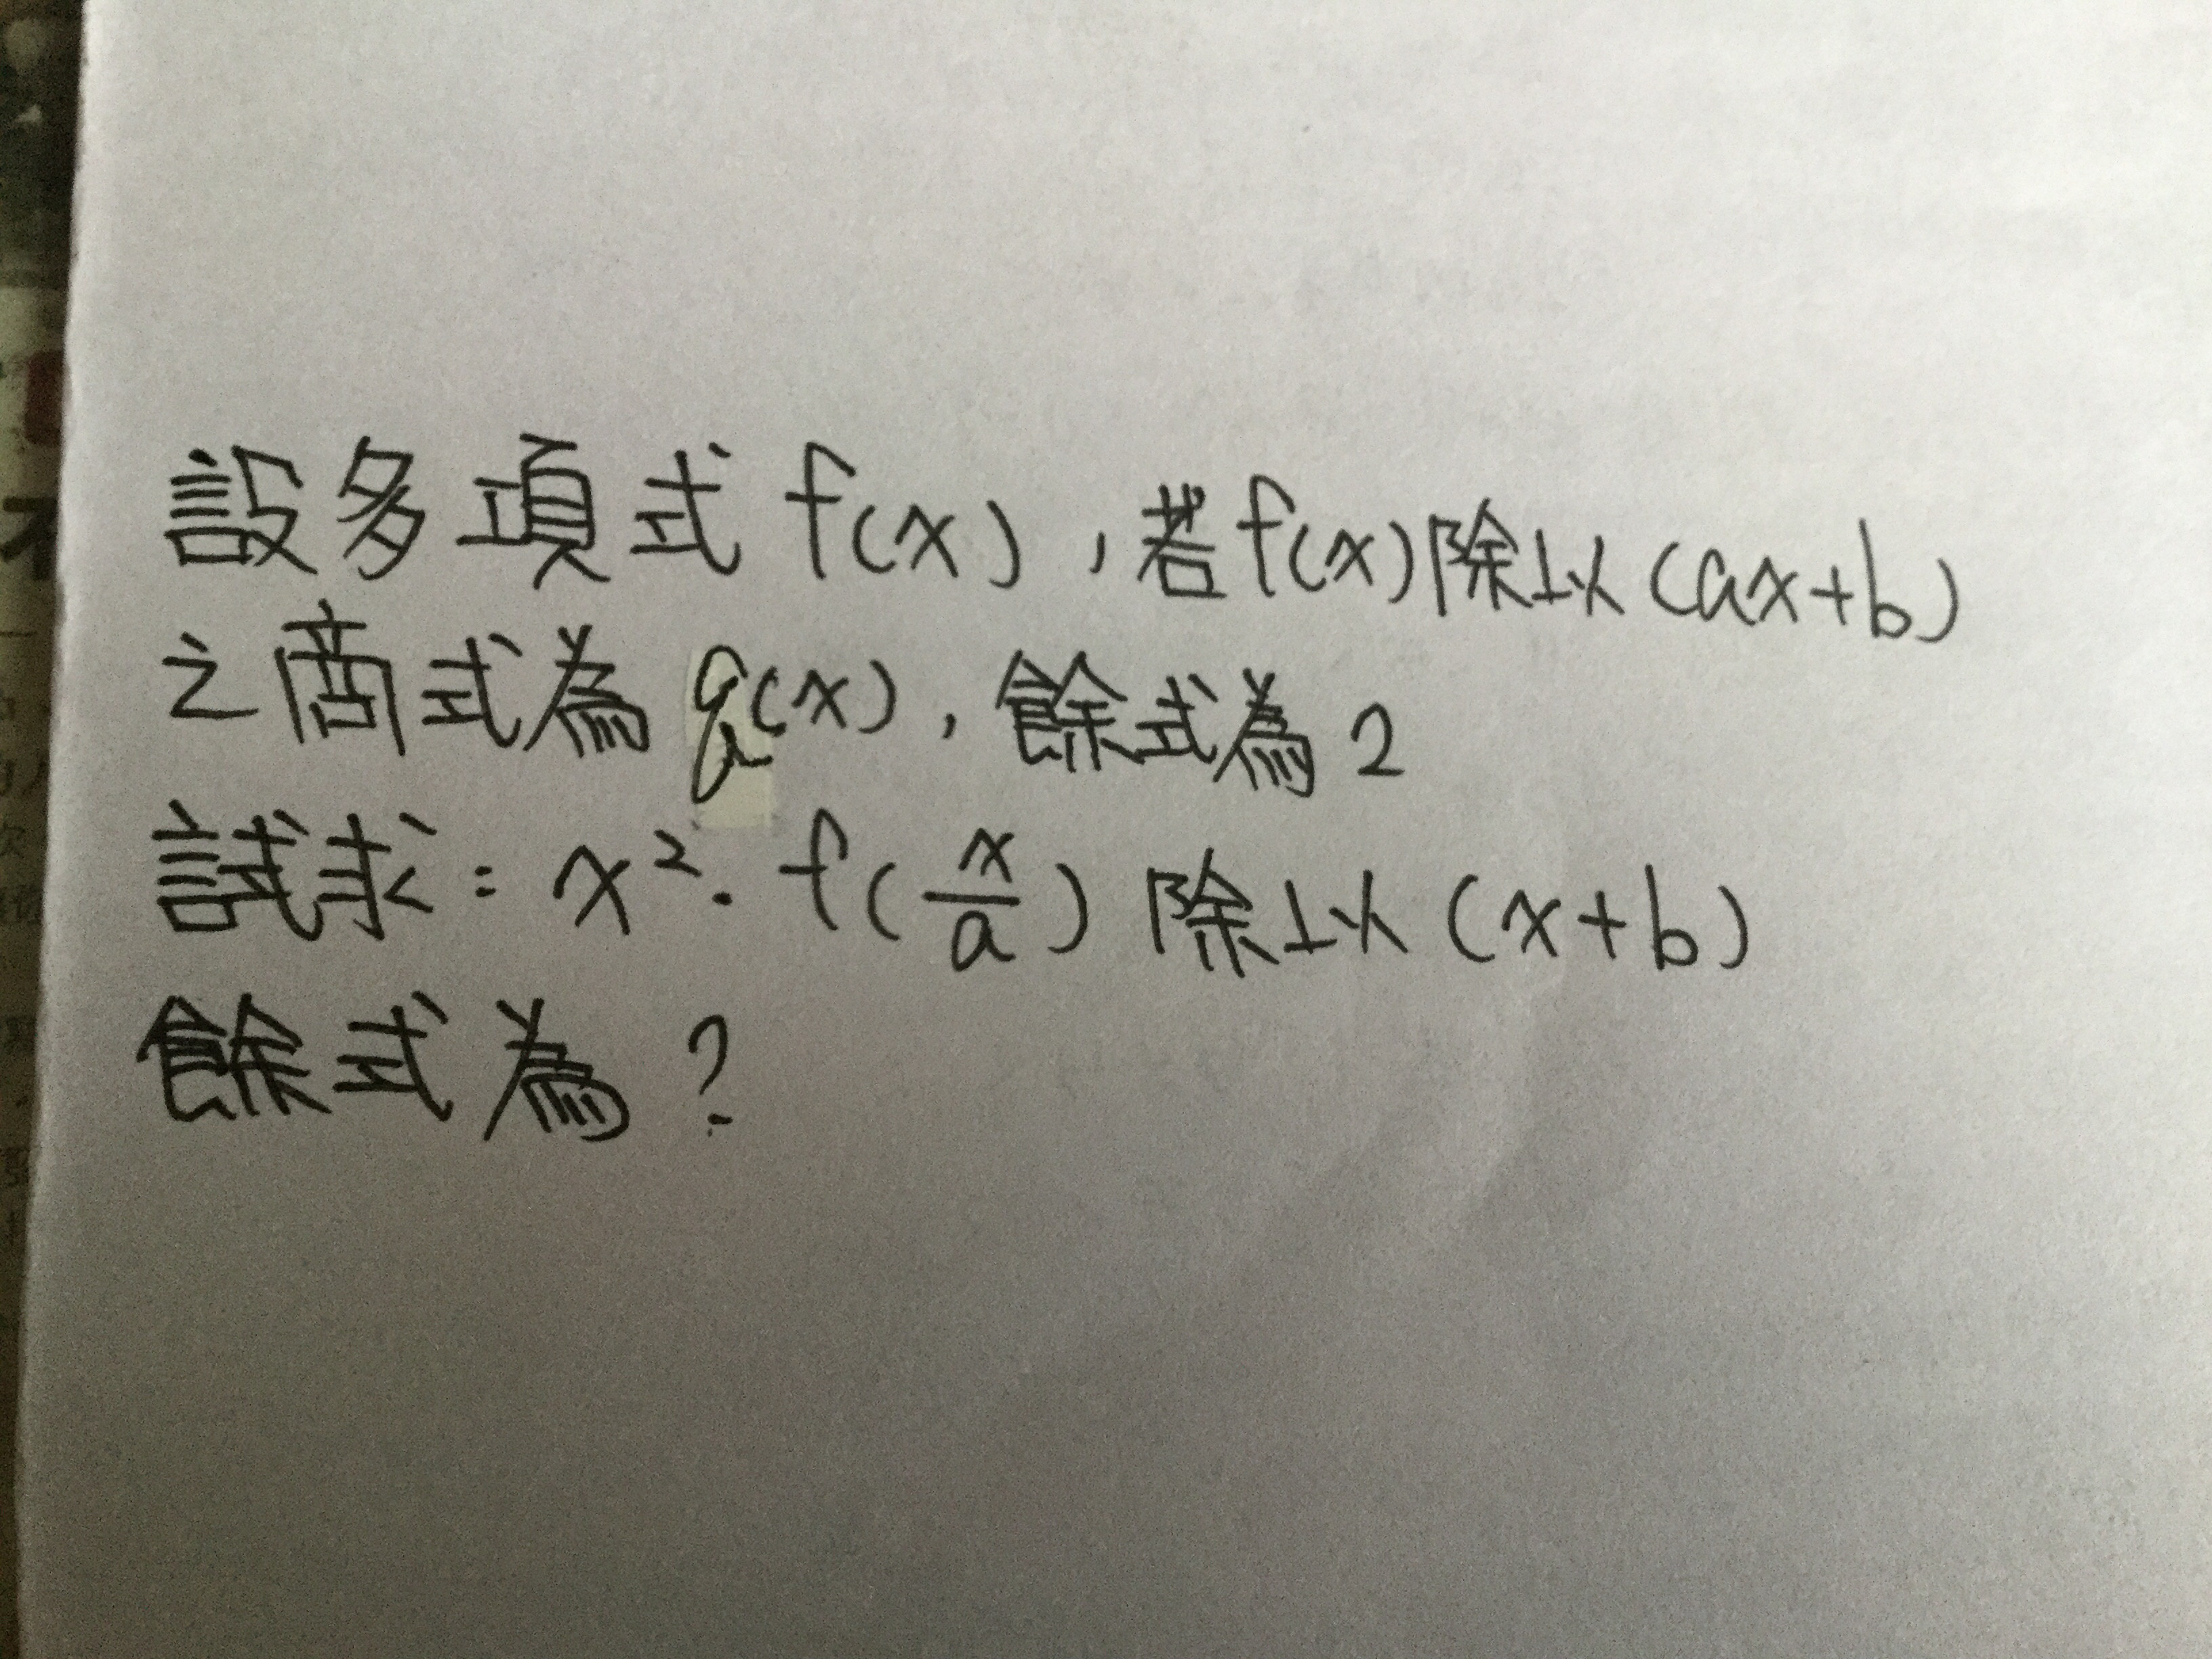 設多項式 f(x)，若f(x)除以(ax+b)
之商式為 q(x)，餘式為2
試求：x²．f(x/a) 除以(x+b)
餘式為？